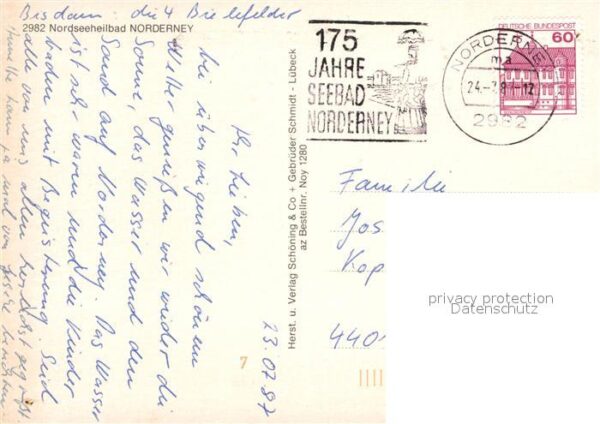 Bis dann: die 4 Bielefelder
2982 Nordseeheilbad NORDERNEY
23.07.87
Ihr Lieben,
bei überwiegend schönem
Wetter genießen wir wieder die
Sonne, das Wasser und den
Sand auf Norderney. Das Wasser
ist sehr warm und die Kinder
baden mit Begeisterung. Seid
alle von uns allen herzlichst gegrüßt.
7
Herst. u. Verlag Schöning & Co + Gebrüder Schmidt - Lübeck
az Bestellnr. Noy 1280
175
JAHRE
SEEBAD
NORDERNEY
NORDERNEY
ma
2982
DEUTSCHE BUNDESPOST
60
Familie
Jos
Kop
440
privacy protection
Datenschutz